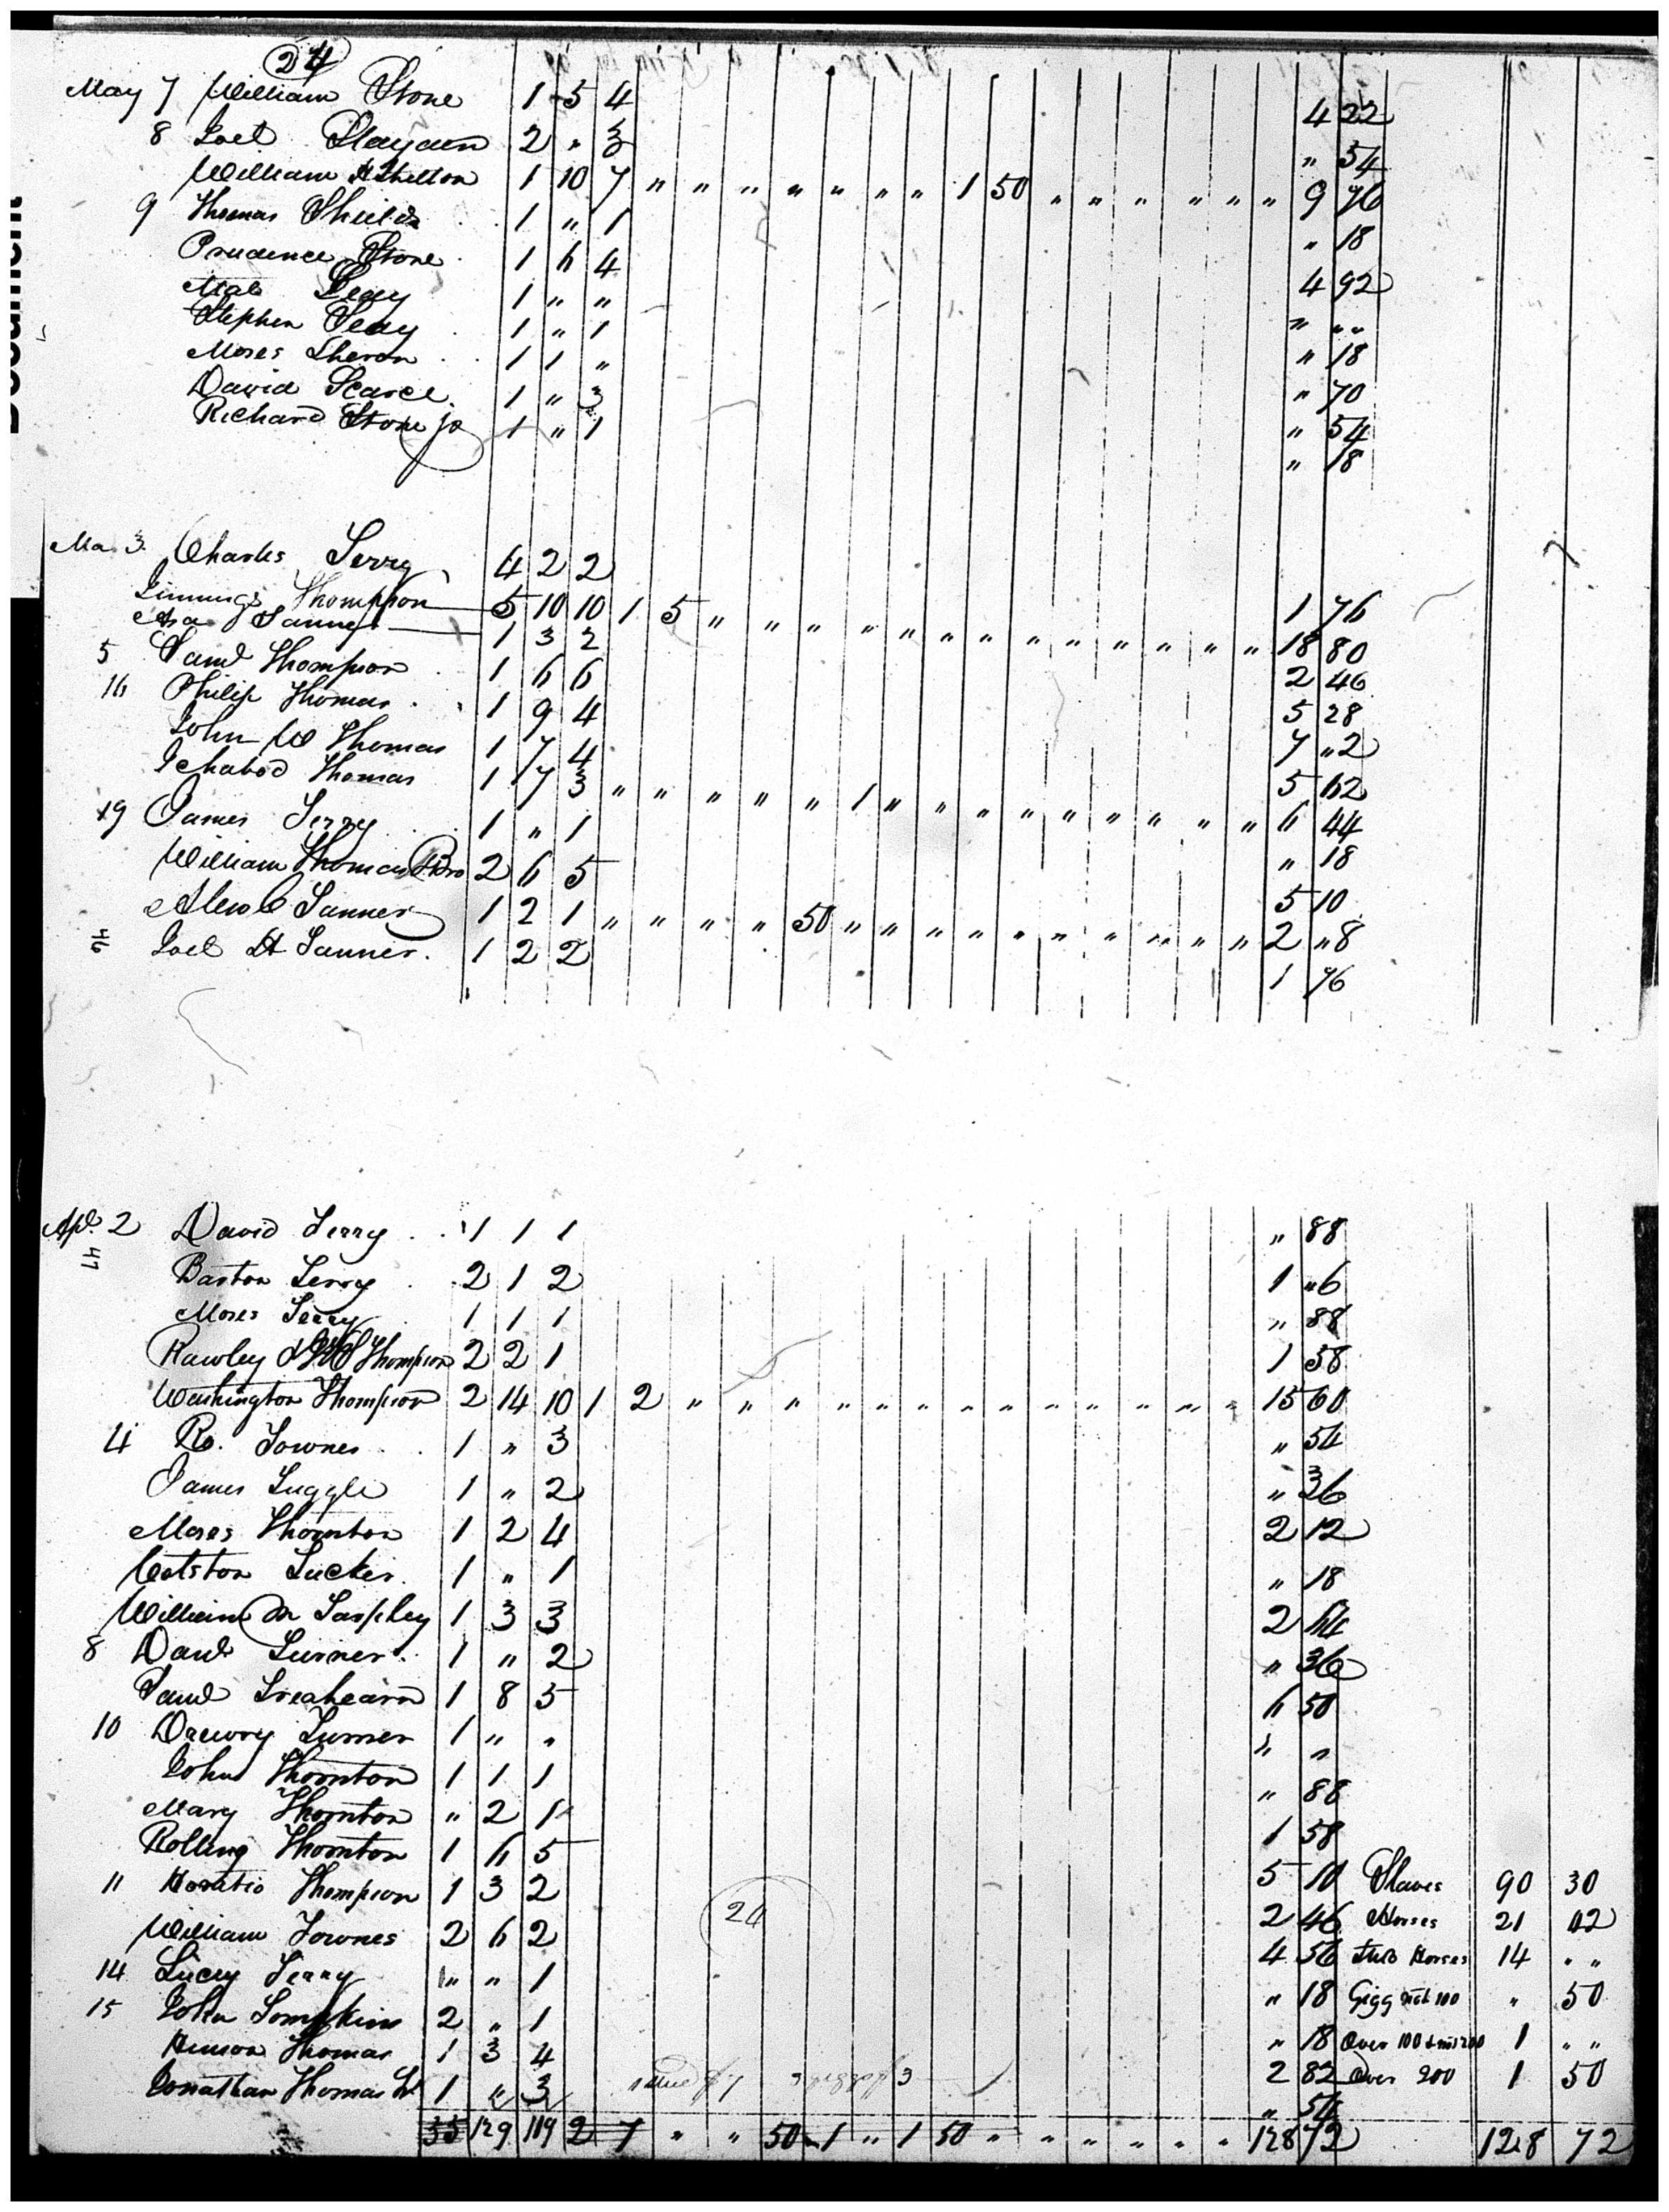 24
May 7 William Stone 1 5 4 4 22
8 Joel Slayden 2 " 3 " 54
William A Shelton 1 10 7 " " " " " " " 1 50 " " " " " " 9 76
9 Thomas Shields 1 " 1 " 18
Prudence Stone 1 6 4 4 92
Seay 1 " " " "
Stephen Seay 1 " 1 " 18
Moses 1 1 " " 70
David Scarce 1 " 3 " 54
Richard Stone Jr 1 " 1 " 18
Ma. 3. Charles Terry 4 2 2 1 76
Jinnings Thompson 5 10 10 1 5 " " " " " " " " " " " " " 18 80
Asa Tanner 1 3 2 2 46
5 Saml Thompson 1 6 6 5 28
16 Philip Thomas 1 9 4 7 " 2
John W Thomas 1 7 4 5 62
Ichabod Thomas 1 7 3 " " " " " 1 " " " " " " " " " 6 44
19 James Terry 1 " 1 " 18
William Thomas 2 6 5 5 10
Tanner 1 2 1 " " " " 50 " " " " " " " " " " 2 " 8
Joel H Tanner 1 2 2 1 76
Apl. 2 David Terry 1 1 1 " 88
Barton Terry 2 1 2 1 " 6
Moses Terry 1 1 1 " 88
Rawley Thompson 2 2 1 1 58
Washington Thompson 2 14 10 1 2 " " " " " " " " " " " " " 15 60
4 Ro. Townes 1 " 3 " 54
James Tuggle 1 " 2 " 36
Moses Thornton 1 2 4 2 12
Colston Tucker 1 " 1 " 18
William M Tarpley 1 3 3 2 64
8 Danl Turner 1 " 2 " 36
Saml Treahearn 1 8 5 6 50
10 Drewry Turner 1 " " " "
John Thornton 1 1 1 " 88
Mary Thornton " 2 1 1 58
Rolling Thornton 1 6 5 5 10 Slaves 90 30
11 Horatio Thompson 1 3 2 24 2 46 Horses 21 42
William Townes 2 6 2 4 56 Stud Horses 14 " "
14 Lucy Terry " " 1 " 18 Gigg 100 " 50
15 John Tompkins 2 " 1 " 18 Over 100 200 1 " "
Henson Thomas 1 3 4 2 82 Over 200 1 50
Jonathan Thomas 1 " 3 " 54
55 129 119 2 7 " " 50 1 " 1 50 " " " " " " 128 72 128 72